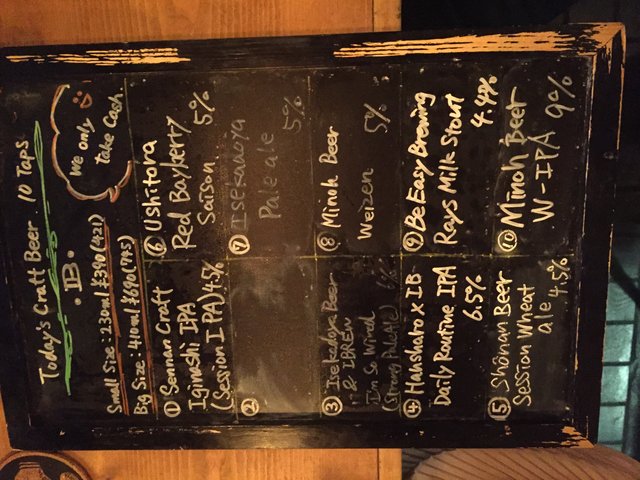 Today's Craft Beer 10 Taps
. IB .
we only
take Cash.
Small Size : 230ml ¥390 (421)
Big Size : 410ml ¥690 (745)
① Sennan Craft
Iginashi IPA
(Session IPA) 4.5%
②
③ Isekadoya Beer
& IBREW
I'm So Wired
(Strong Pale Ale) 6%
④ Hanshatro x IB
Daily Routine IPA
6.5%
⑤ Shonan Beer
Session Wheat
ale 4.5%
⑥ Ushitora
Red Bayberry
Saison 5%
⑦ ISEKADOYA
Pale ale
5%
⑧ Minoh Beer
Weizen 5%
⑨ Be Easy Brewing
Rays Milk Stout
4.4%
⑩ Minoh Beer
W-IPA 9%